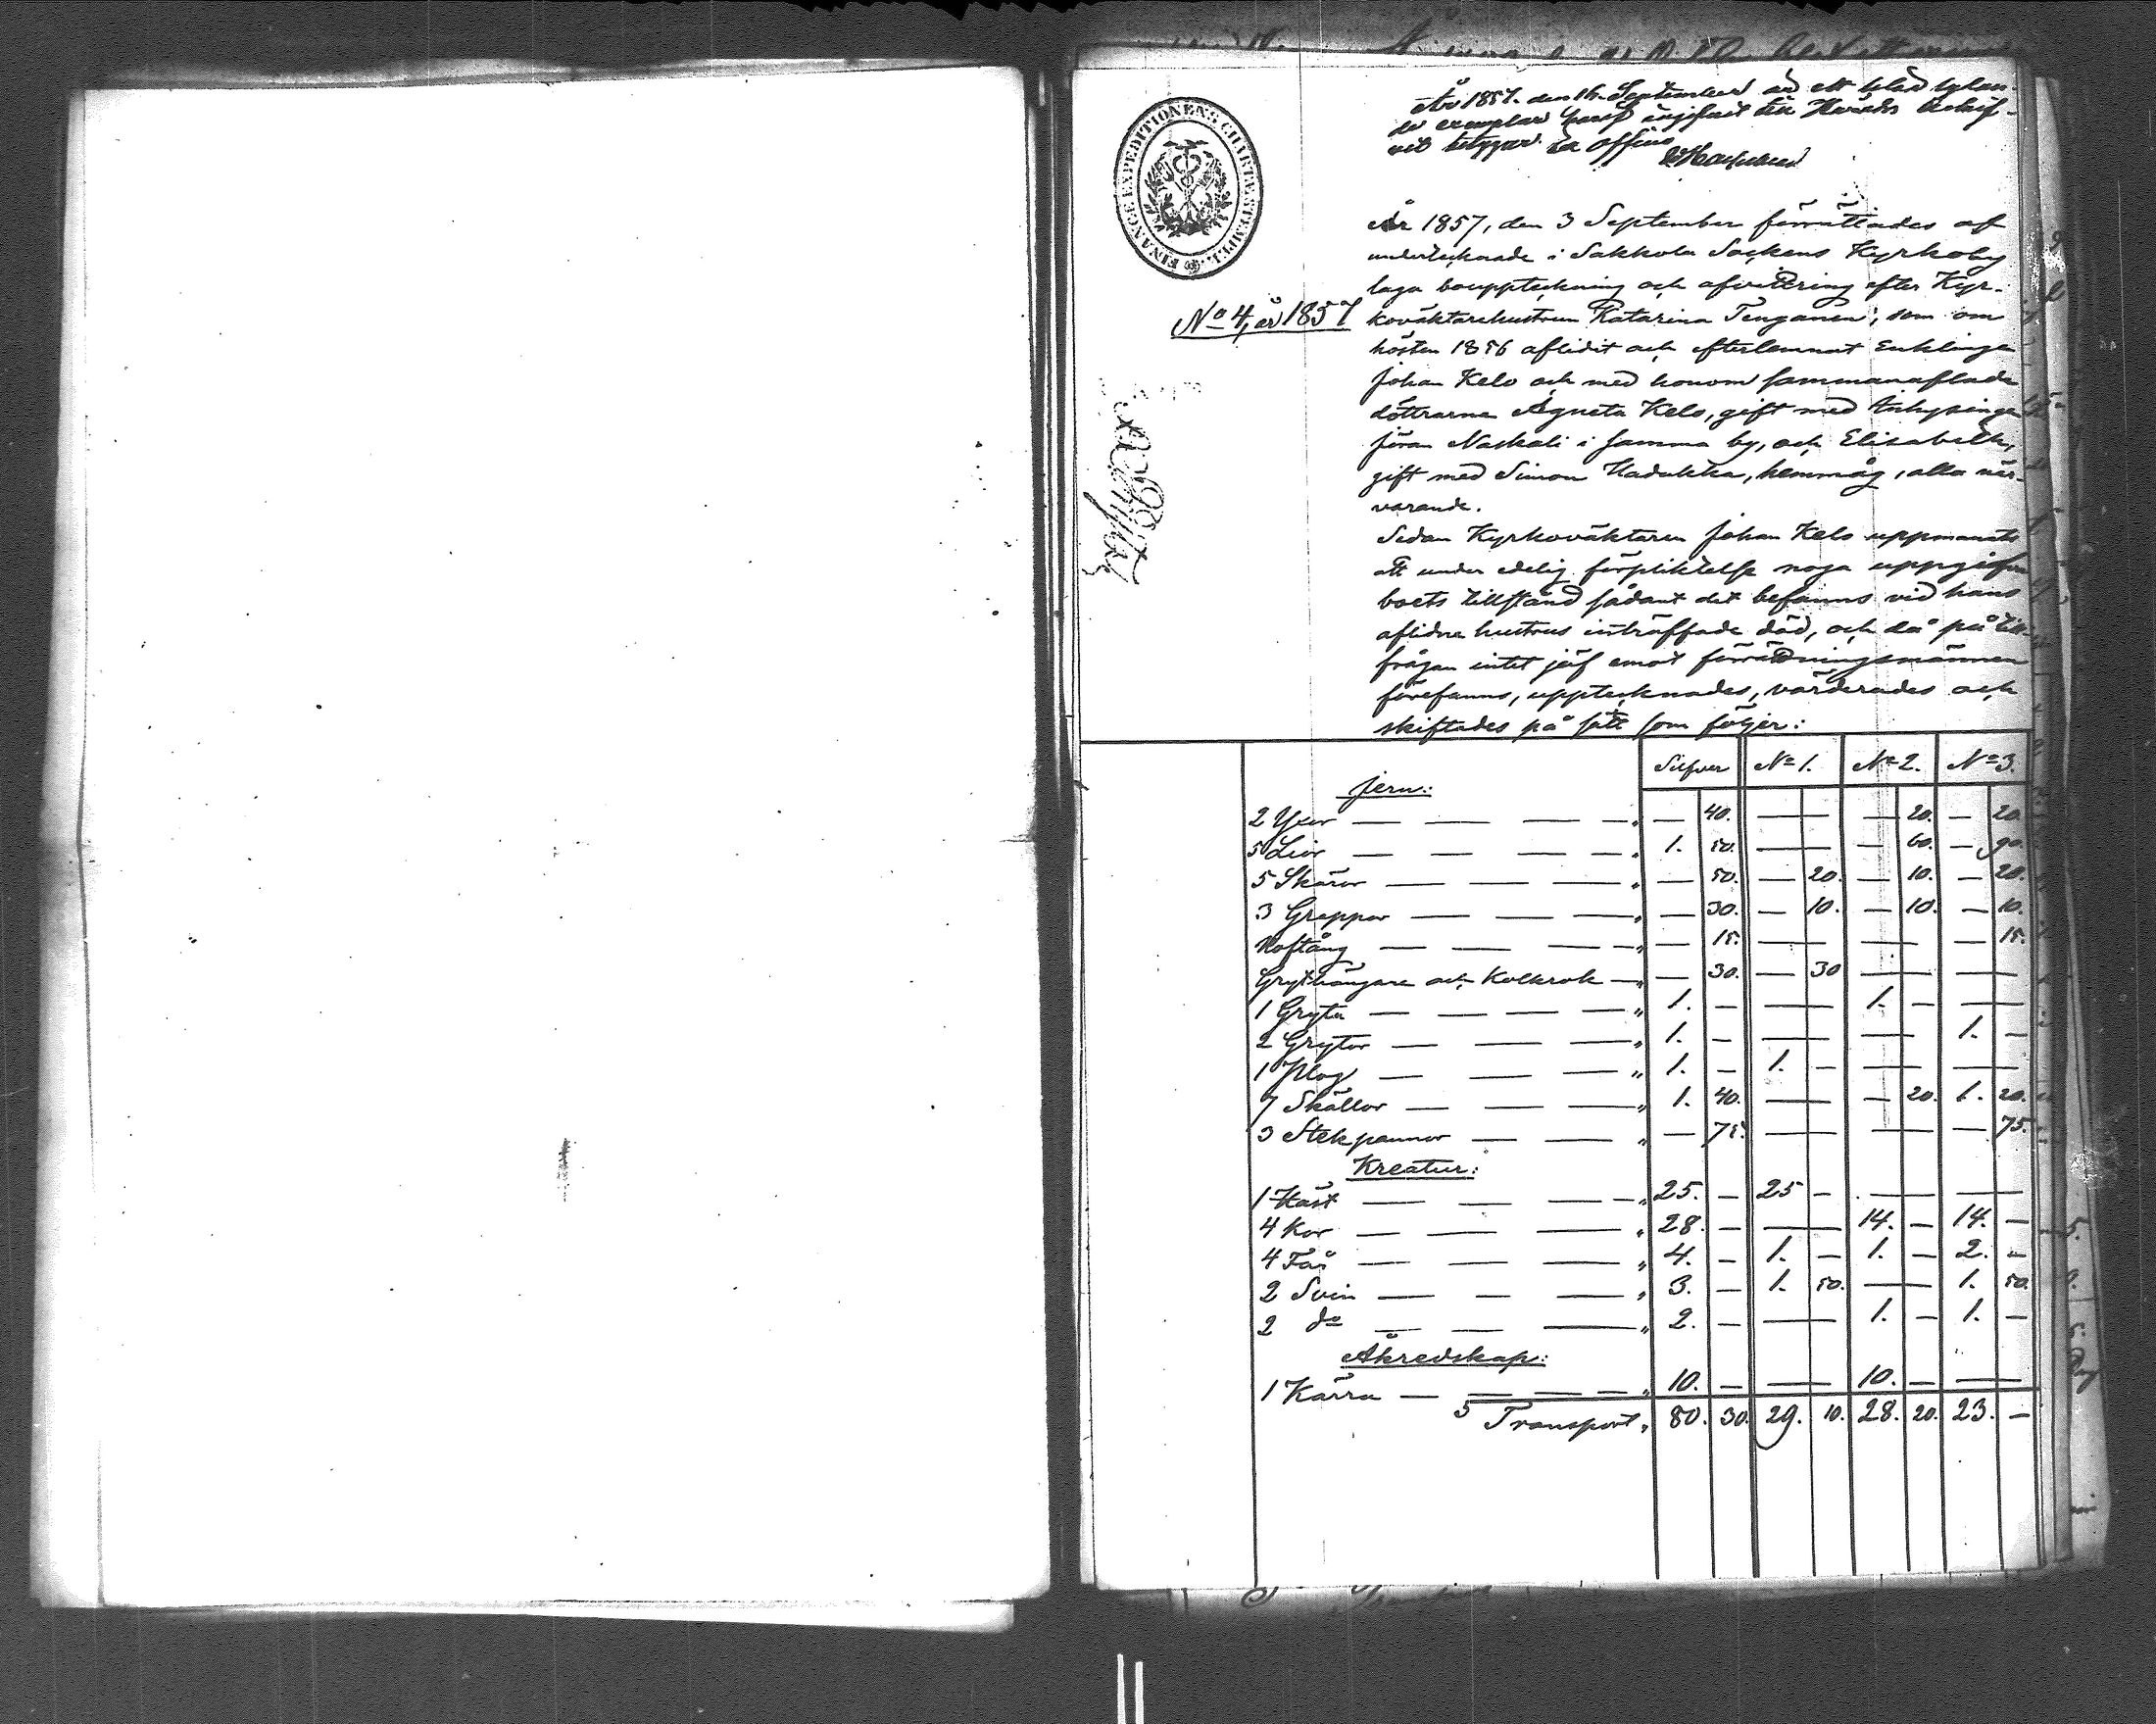 År 1857. den 16. September är ett lika lydan-
de exemplar häraf ingifvet till Härads Arkif-
vet betygar Ex officio
FINANCE EXPEDITIONENS CHARTÆ STEMPEL
No 4, år 1857
År 1857, den 3 September förrättades af
undertecknade i Sakkola Sockens Kyrkoby
laga bouppteckning och afvittring efter Kyr-
koväktarehustrun Katarina Tenganen, som om
hösten 1856 aflidit och efterlemnat Enklinge
Johan Kelo och med honom sammanaflade
döttrarne Agneta Kelo, gift med Inhysinge
Jöran Naskali i samma by, och Elisabeth,
gift med Simon Hadukka, hemmåg, alla när-
varande.
Sedan Kyrkoväktaren Johan Kelo uppmanats
att under edelig förpliktelse noga uppgifva
boets tillstånd sådant det befanns vid hans
aflidne hustrus inträffade död, och då på till-
frågan intet jäf emot förrättningsmännen
förefanns, upptecknades, värderades och
skiftades på sätt som följer:
Silfver No 1. No 2. No 3.
Jern:
2 Yxor — — — — „ — 40. — — 20. — 20.
5 Liar — — — — „ 1. 50. — — 60. — 90.
5 Skäror — — — — „ — 50. — 20. — 10. — 20.
3 Greppar — — — — „ — 30. — 10. — 10. — 10.
Hoftång — — — — „ — 15. — — — 15.
Grythängare och Kolkrok — „ — 30. — 30 — —
1 Gryta — — — — „ 1. — — 1. — —
2 Grytor — — — „ 1. — — — 1. —
1 Plog — — — „ 1. — 1. — — —
7 Skällor — — — „ 1. 40. — — 20. 1. 20.
3 Stekpannor — — — „ — 75. — — — 75.
Kreatur:
1 Häst — — — — „ 25. — 25 — — —
4 Kor — — — — „ 28. — — 14. — 14. —
4 Får — — — — „ 4. — 1. — 1. — 2. —
2 Svin — — — „ 3. — 1. 50. — 1. 50.
2 do — — — „ 2. — — 1. — 1. —
Åkredskap:
1 Kärra — — — — „ 10. — — 10. — —
Transport „ 80. 30. 29. 10. 28. 20. 23. —